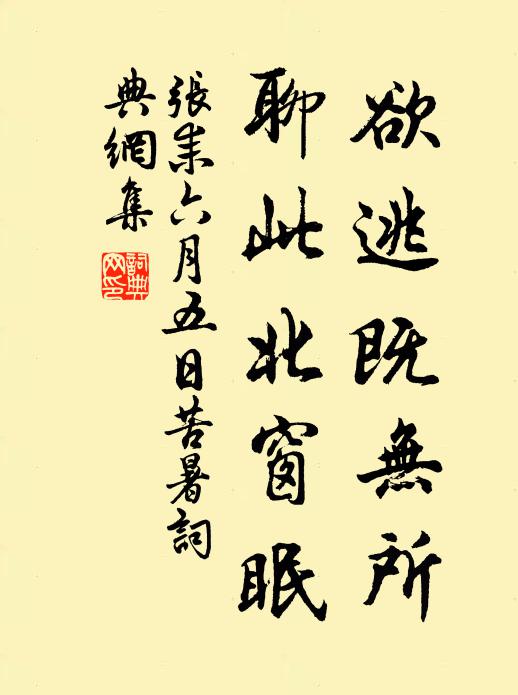 欲逃既無所
聊此北窗眠
張耒六月五日苦暑詞
典網集
詞典网印